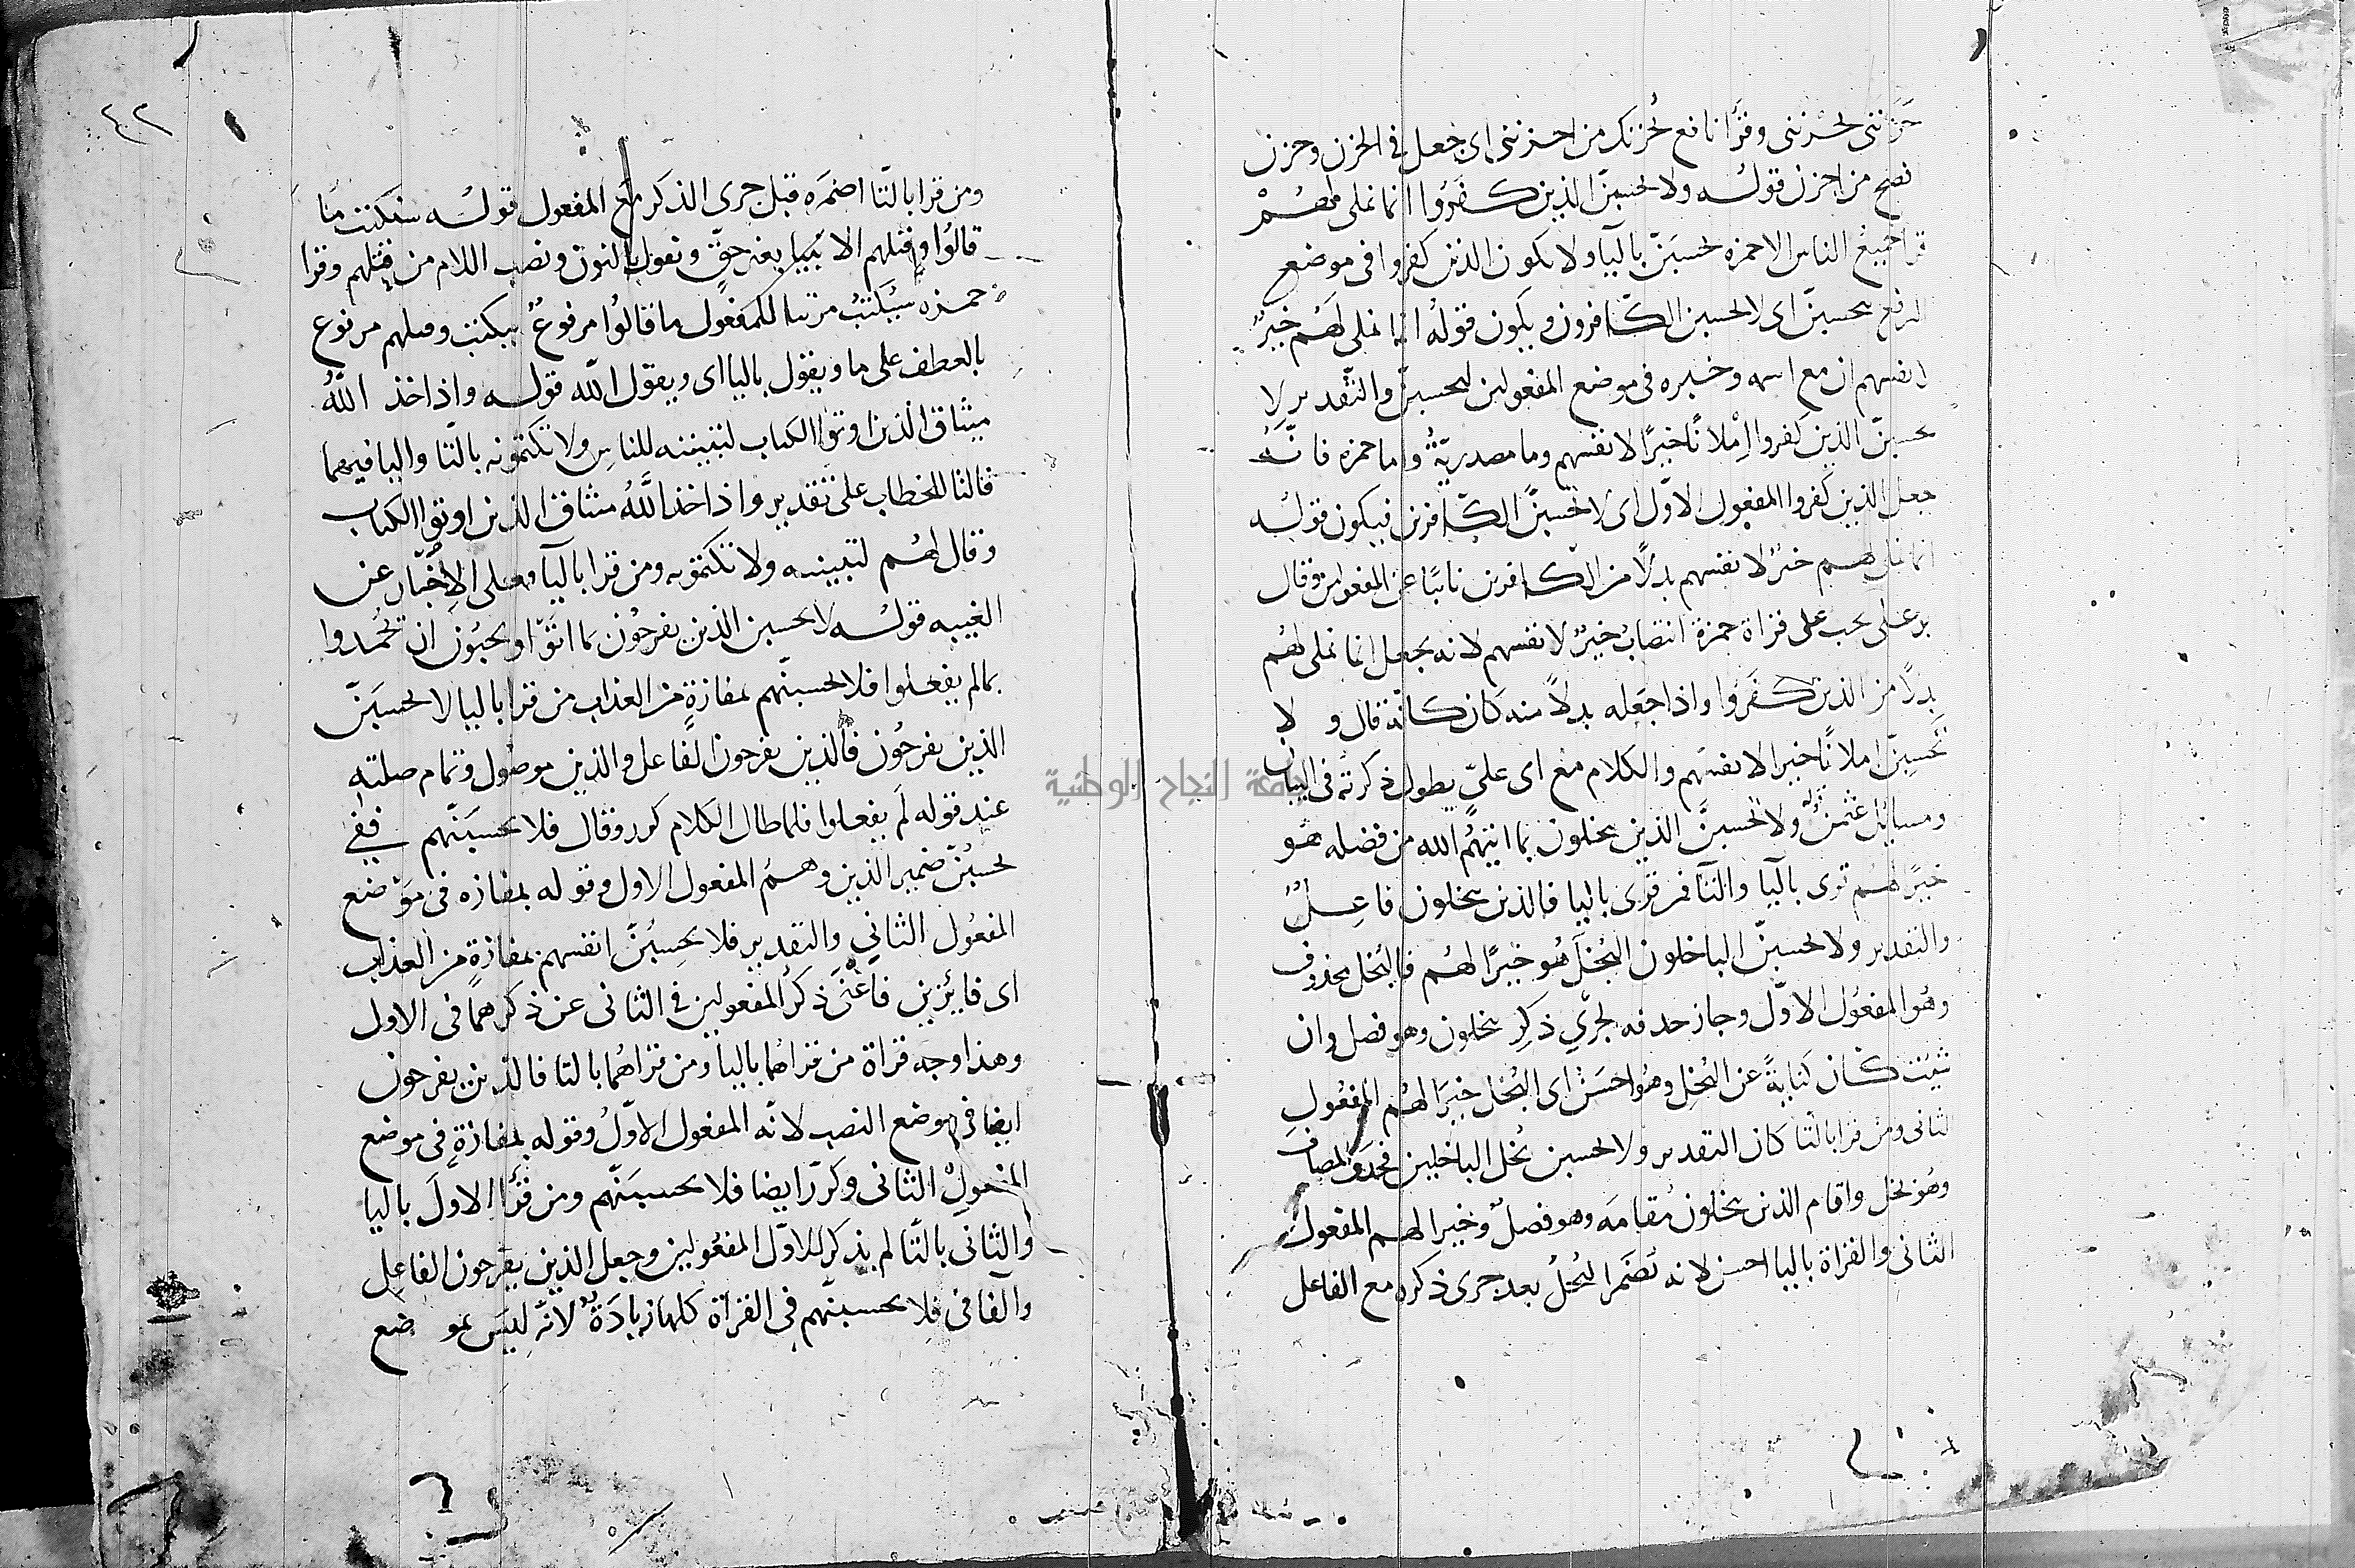 حزنني يحزنني وقرا نافع يحزنك من احزنني اي جعل في الحزن وحزن
افصح من احزن قوله ولا يحسبن الذين كفروا انما نملي لهم
قرا جميع الناس الا حمزه يحسبن باليا ولا يكون الذين كفروا في موضع
الرفع بيحسبن اي لا يحسبن الكافرون ويكون قوله انما نملي لهم خير
لانفسهم ان مع اسمه وخبره في موضع المفعولين ليحسبن والتقدير لا
يحسبن الذين كفروا املانا خيرا لانفسهم وما مصدرية واما حمزه فانه
جعل الذين كفروا المفعول الاول اي لا تحسبن الكافرين فيكون قوله
انما نملي لهم خير لانفسهم بدلا من الكافرين نائبا عن المفعولين وقال
بو علي يجب على قراة حمزة انتصاب خير لانفسهم لانه يجعل انما نملي لهم
بدلا من الذين كفروا واذا جعله بدلا منه كان كانه قال ولا
تحسبن املانا خيرا لانفسهم والكلام مع ابي علي يطول ذكرته في البيان
ومسايل عثمن قوله ولا يحسبن الذين يبخلون بما اتيهم الله من فضله هو
خيرا لهم قرى باليا والتا فمن قرى باليا فالذين يبخلون فاعل
والتقدير ولا يحسبن الباخلون البخل هو خيرا لهم فالبخل محذوف
وهو المفعول الاول وجاز حذفه لجري ذكر يبخلون وهو فصل وان
شيت كان كناية عن البخل وهو احسن اي البخل خيرا لهم المفعول
الثاني ومن قرا بالتا كان التقدير ولا تحسبن بخل الباخلين فحذف المضاف
وهو بخل واقام الذين يبخلون مقامه وهو فصل وخيرا لهم المفعول
الثاني والقراة باليا احسن لانه تضمر البخل بعد جري ذكره مع الفاعل
٤٢
ومن قرا بالتا اضمره قبل جرى الذكر مع المفعول قوله سنكتب ما
قالوا وقتلهم الانبيا بغير حق ونقول بالنون ونصب اللام من قتلهم وقرا
حمزه سيكتب مرتبا للمفعول ما قالوا مرفوع بيكتب وقتلهم مرفوع
بالعطف على ما ويقول باليا اي ويقول الله قوله واذ اخذ الله
ميثاق الذين اوتوا الكتاب لتبيننه للناس ولا تكتمونه بالتا واليا فيهما
فالتا للخطاب على تقدير واذ اخذ الله ميثاق الذين اوتوا الكتاب
وقال لهم لتبيننه ولا تكتمونه ومن قرا باليا فعلى الاخبار عن
الغيبه قوله لا يحسبن الذين يفرحون بما اتوا ويحبون ان يحمدوا
بما لم يفعلوا فلا تحسبنهم بمفازة من العذاب من قرا باليا لا يحسبن
الذين يفرحون فالذين يفرحون الفاعل والذين موصول وتمام صلته
عند قوله لم يفعلوا فلما طال الكلام كرر وقال فلا يحسبنهم ففي
يحسبن ضمير الذين وهم المفعول الاول وقوله بمفازه في موضع
المفعول الثاني والتقدير فلا يحسبن انفسهم بمفازة من العذاب
اي فايزين فاغنى ذكر المفعولين في الثاني عن ذكرهما في الاول
وهذا وجه قراة من قراهما باليا ومن قراهما بالتا فالذين يفرحون
ايضا في موضع النصب لانه المفعول الاول وقوله بمفازة في موضع
المفعول الثاني وكرر ايضا فلا تحسبنهم ومن قرا الاول باليا
والثاني بالتا لم يذكر للاول المفعولين وجعل الذين يفرحون الفاعل
والفا في فلا تحسبنهم في القراة كلها زيادة لانه ليس بموضع
جامعة النجاح الوطنية